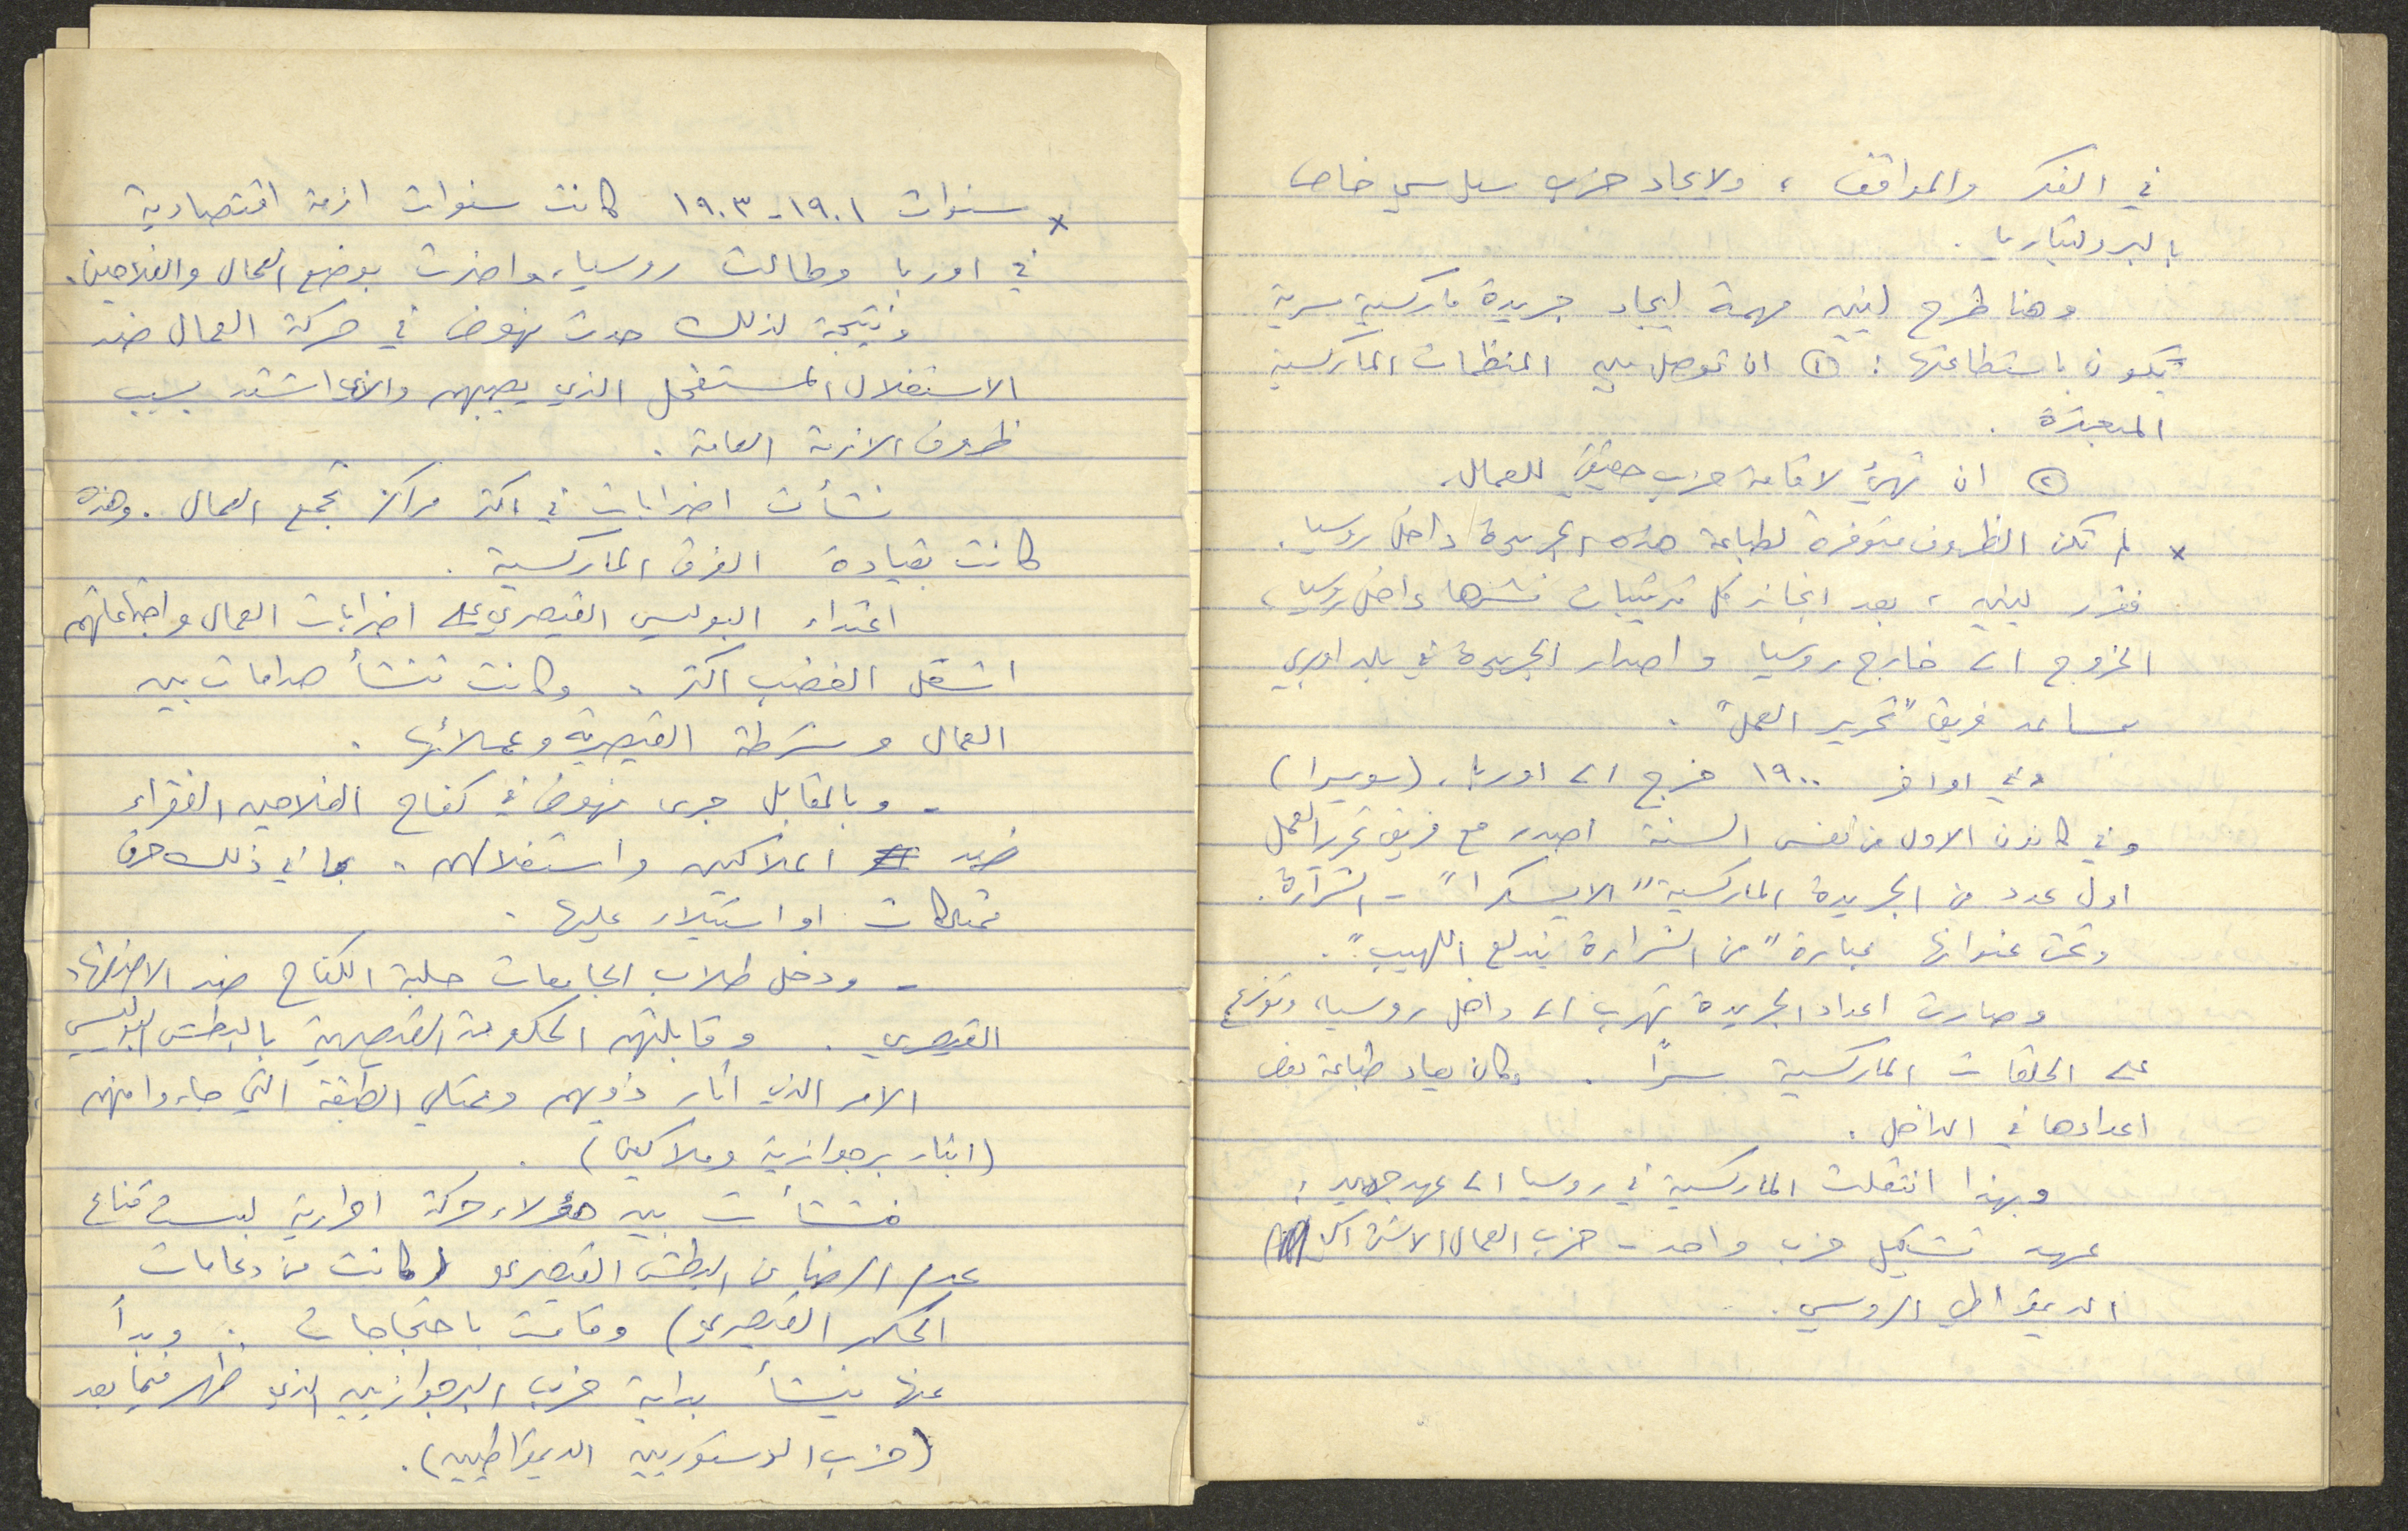 في الفكر والمواقف ، ولايجاد حزب سياسي خاص
بالبروليتاريا .
وهنا طرح لينين مهمة ايجاد جريدة ماركسية سرية
يكون باستطاعتها : ① ان توصل بين المنظمات الماركسية
المبعثرة .
② ان تهيئ لاقامة حزب حقيقي للعمال .
× لم تكن الظروف متوفرة لطباعة هذه الجريدة داخل روسيا .
فقرر لينين ، بعد انجاز كل ترتيبات نشرها داخل روسيا ،
الخروج الى خارج روسيا واصدار الجريدة في بلد اوربي
بمساعد فريق "تحرير العمل" .
وفي اواخر ١٩٠٠ خرج الى اوربا . (سويسرا)
وفي كانون الاول من نفس السنة اصدر مع فريق تحرير العمل
اول عدد من الجريدة الماركسية "الايسكرا" - الشرارة .
وتحت عنوانها عبارة "من الشرارة يندلع اللهيب" .
وصارت اعداد الجريدة تهرب الى داخل روسيا ، وتوزع
على الحلقات الماركسية سراً . وكان يعاد طباعة بعض
اعدادها في الداخل .
وبهذا انتقلت الماركسية في روسيا الى عهد جديد :
عهد تشكيل حزب واحد - حزب العمال الاشتراكي
الديمقراطي الروسي .
× سنوات ١٩٠١ - ١٩٠٣ كانت سنوات ازمة اقتصادية
في اوربا وطالت روسيا ، واضرت بوضع العمال والفلاحين .
ونتيجة لذلك حدث نهوض في حركة العمال ضد
الاستغلال المستفحل الذي يصيبهم والذي اشتد بسبب
ظروف الازمة العامة .
نشأت اضرابات في اكثر مراكز تجمع العمال . وهذه
كانت بقيادة الفرق الماركسية .
اعتداء البوليس القيصري على اضرابات العمال واجتماعاتهم
اشعل الغضب اكثر . وكانت تنشأ صدامات بين
العمال وشرطة القيصرية وعملائها .
- وبالمقابل جرى نهوض في كفاح الفلاحين الفقراء
ضد الملاكين واستغلالهم . بما في ذلك حرق
ممتلكات او استيلاء عليها .
- ودخل طلاب الجامعات حلبة الكفاح ضد الاضطهاد
القيصري . وقابلتهم الحكومة القيصرية بالبطش البوليسي
الامر الذي اثار ذويهم وممثلي الطبقة التي جاءوا منهم
(ابناء برجوازية وملاكين) .
فنشأت بين هؤلاء حركة احرارية لبست قناع
عدم الرضا من البطش القيصري (كانت من دعامات
الحكم القيصري) وقامت باحتجاجات . وبدأ
عنها ينشأ بداية حزب البرجوازيين الذي ظهر فيما بعد
(حزب الدستوريين الديمقراطيين) .